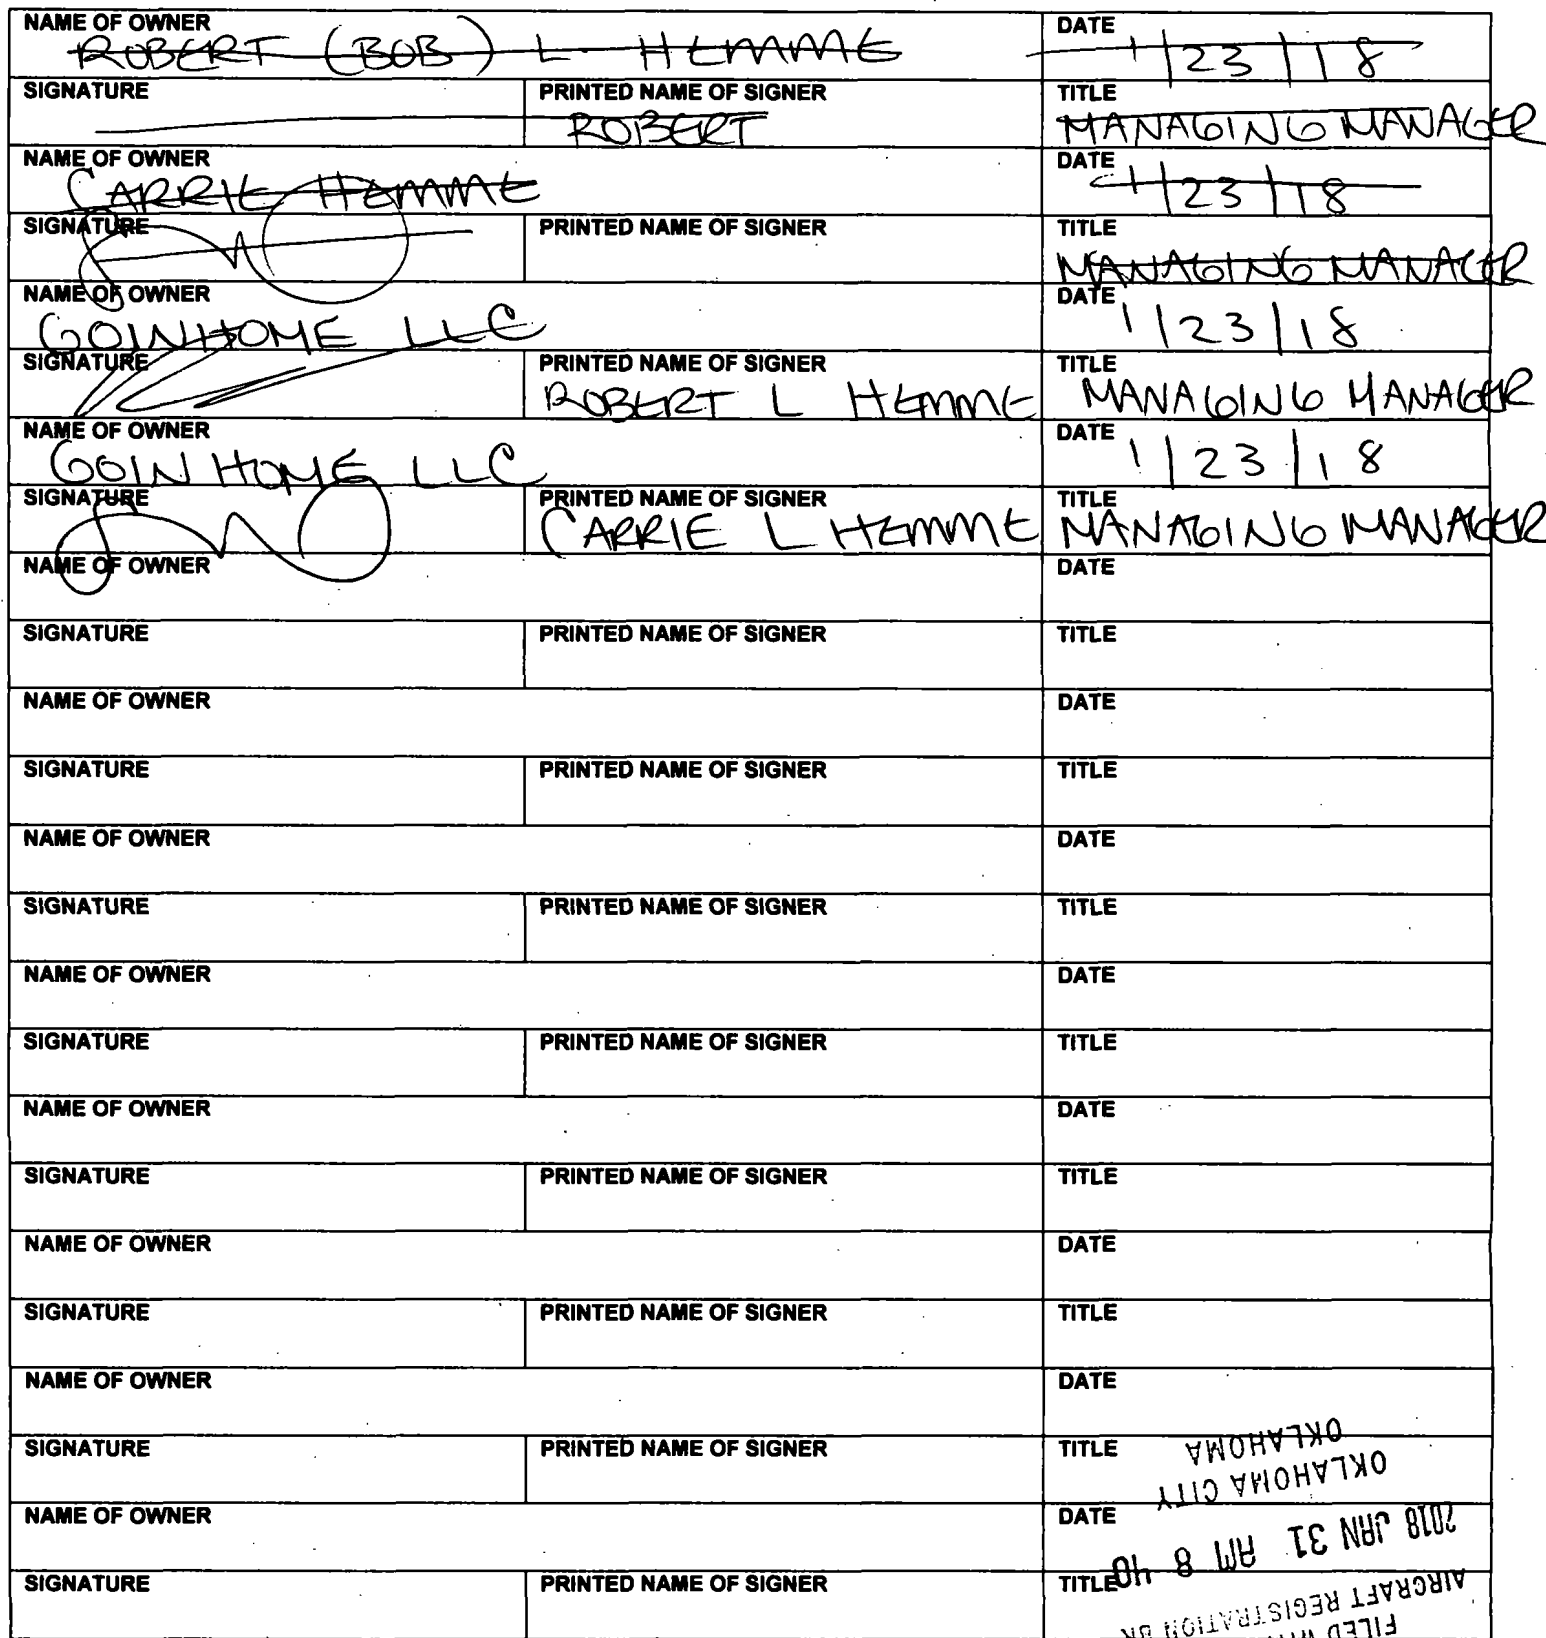 NAME OF OWNER DATE
ROBERT (BOB) L HEMME 1/23/18
SIGNATURE PRINTED NAME OF SIGNER TITLE
ROBERT MANAGING MANAGER
NAME OF OWNER DATE
CARRIE HEMME 1/23/18
SIGNATURE PRINTED NAME OF SIGNER TITLE
MANAGING MANAGER
NAME OF OWNER DATE
GOINHOME LLC 1/23/18
SIGNATURE PRINTED NAME OF SIGNER TITLE
ROBERT L HEMME MANAGING MANAGER
NAME OF OWNER DATE
GOIN HOME LLC 1/23/18
SIGNATURE PRINTED NAME OF SIGNER TITLE
CARRIE L HEMME MANAGING MANAGER
NAME OF OWNER DATE
SIGNATURE PRINTED NAME OF SIGNER TITLE
NAME OF OWNER DATE
SIGNATURE PRINTED NAME OF SIGNER TITLE
NAME OF OWNER DATE
SIGNATURE PRINTED NAME OF SIGNER TITLE
NAME OF OWNER DATE
SIGNATURE PRINTED NAME OF SIGNER TITLE
NAME OF OWNER DATE
SIGNATURE PRINTED NAME OF SIGNER TITLE
NAME OF OWNER DATE
SIGNATURE PRINTED NAME OF SIGNER TITLE
NAME OF OWNER DATE
SIGNATURE PRINTED NAME OF SIGNER TITLE
NAME OF OWNER DATE
SIGNATURE PRINTED NAME OF SIGNER TITLE
FILED
AIRCRAFT REGISTRATION BR
2018 JAN 31 AM 8 40
OKLAHOMA CITY
OKLAHOMA